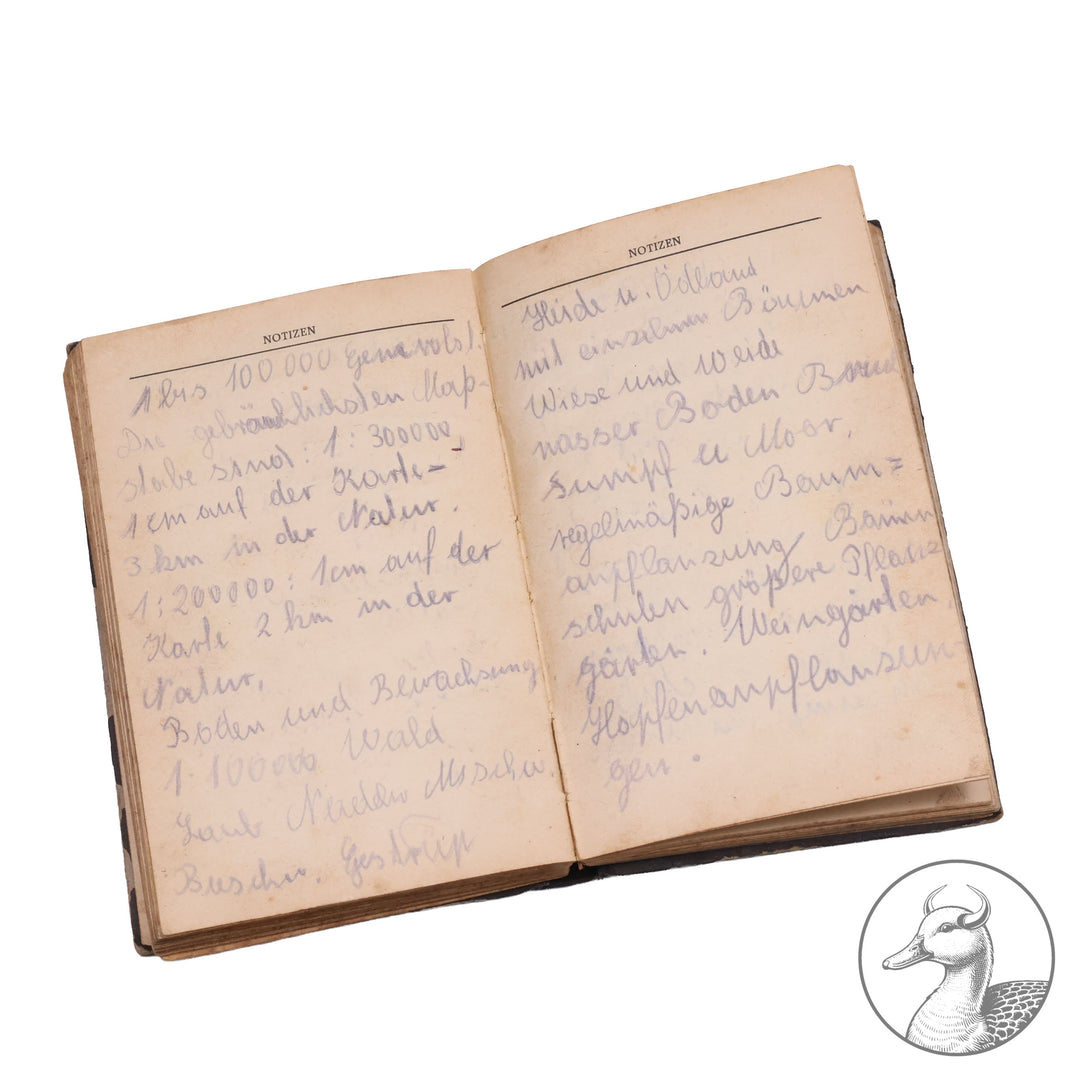 NOTIZEN
1 bis 100000 Generalst.
Die gebräuchlichsten Maß-
stabe sind: 1:300000,
1 cm auf der Karte=
3 km in der Natur.
1:200000: 1cm auf der
Karte 2 km in der
Natur.
Boden und Bewachsung
1 100000 Wald
Laub Mischw.
Buschw. Gestrüp
NOTIZEN
Heide u. Ödland
mit einzelnen Bäumen
Wiese und Weide
nasser Boden
Sumpf u Moor,
regelmäßige Baum=
anpflanzung Bäum
schulen größere Pflanz
gärten. Weingärten,
Hopfenanpflansun
gen.